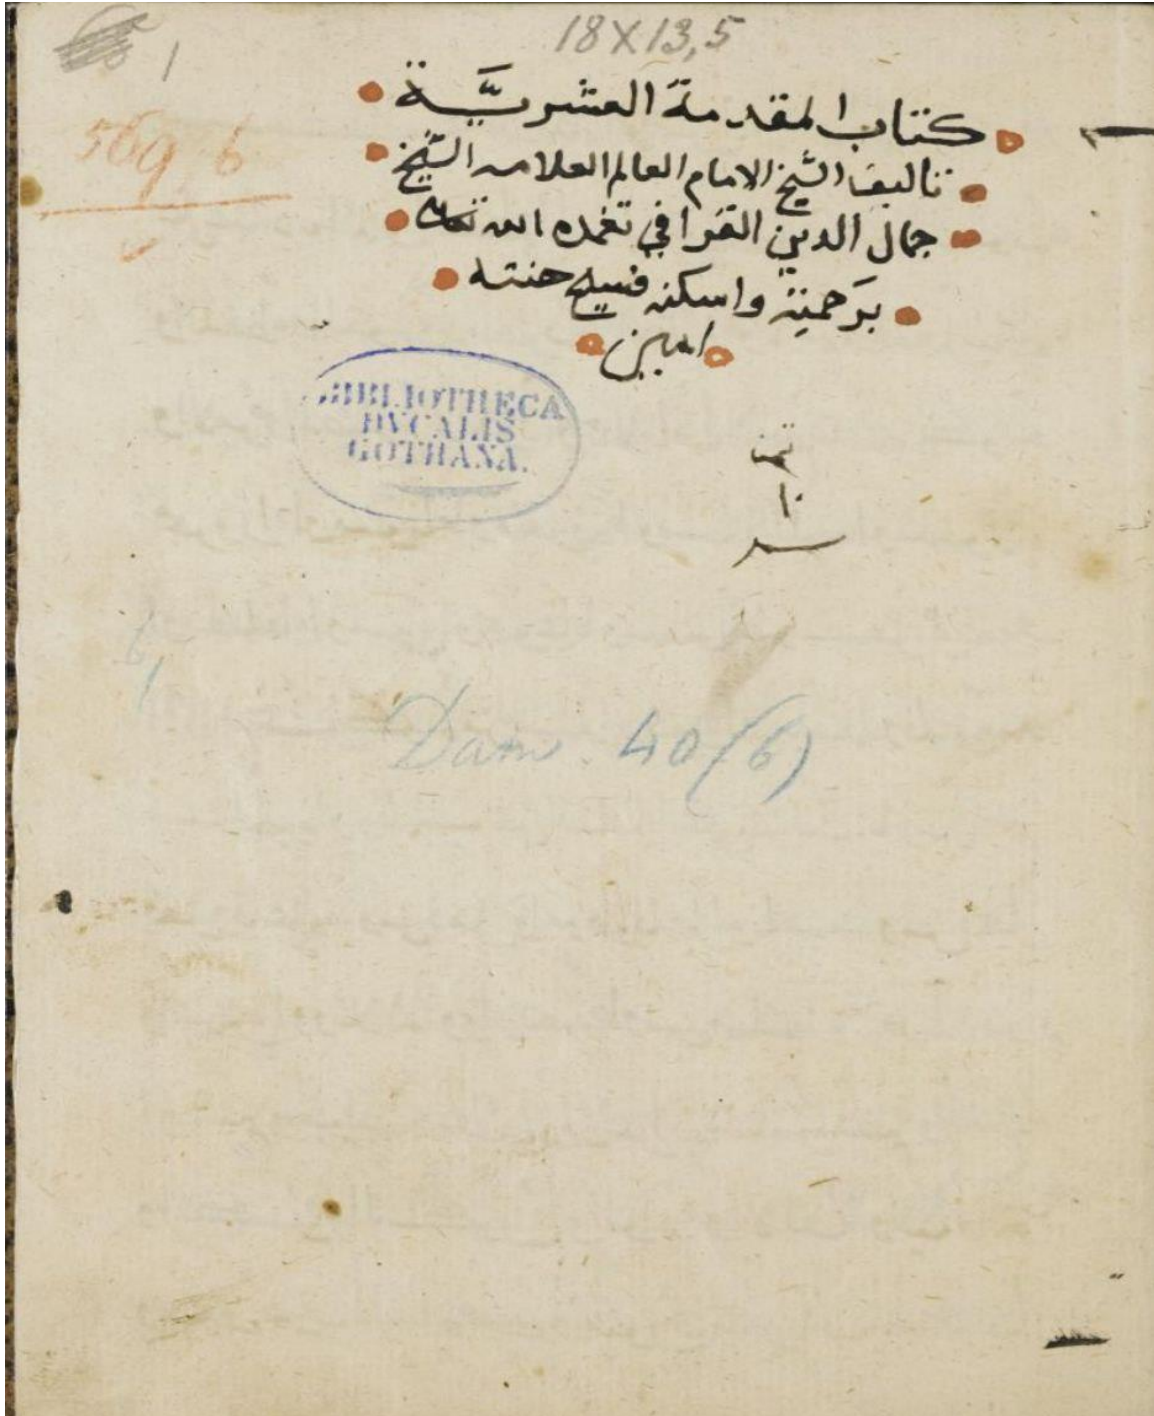 1
18 X 13,5
كتاب المقدمة العشريَّة
569 6
تاليف الشيخ الامام العالم العلامه الشيخ
جمال الدين القرافي تغمده الله تعالى
برَحمته واسكنه فسيح جنته
امين
BIBLIOTHECA
DVCALIS
GOTHANA.
ثمن
١٠
Dam. 40 (6)